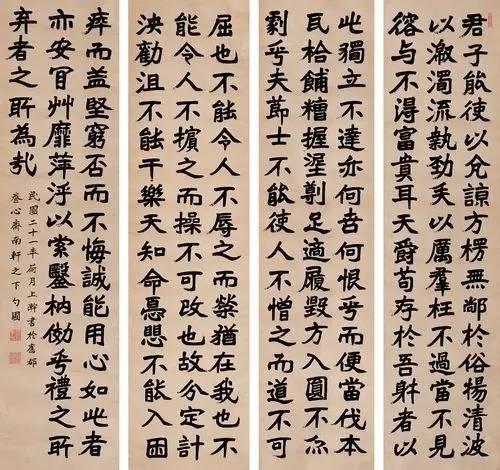 君子能使以兊諒方楞無於俗揚清波
以激濁流執勁矢以厲羣枉不過當不見
容与不得富貴耳天爵苟存於吾躰者以
此獨立不達亦何何恨乎而便當伐本
瓦枱餔糟握埿剸足適履毀方入圓不尒
劇乎夫節士不能使人不憎之而道不可
屈也不能令人不辱之而榮猶在我也不
能令人不擯之而操不可改也故分定計
決勸沮不能干樂天知命憂懼不能入困
瘁而益堅窮否而不悔誠能用心如此者
亦安肎艸靡萍浮以索鑿枘効乎禮之所
弃者之所為㢤
民國二十一年荷月上澣書於舊都
養心齋南軒之下勺園